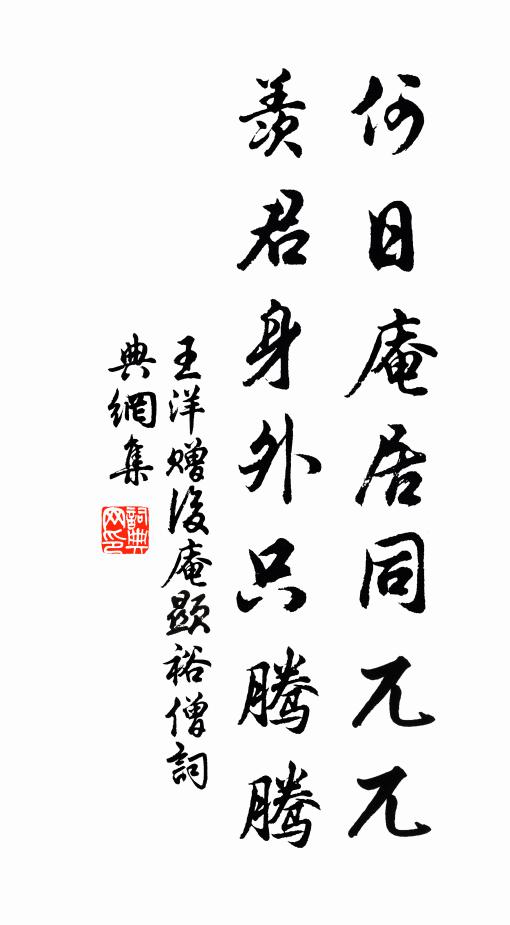 何日庵居同兀兀
羨君身外只騰騰
王洋贈後庵顯裕僧詞
典網集
詞典网印